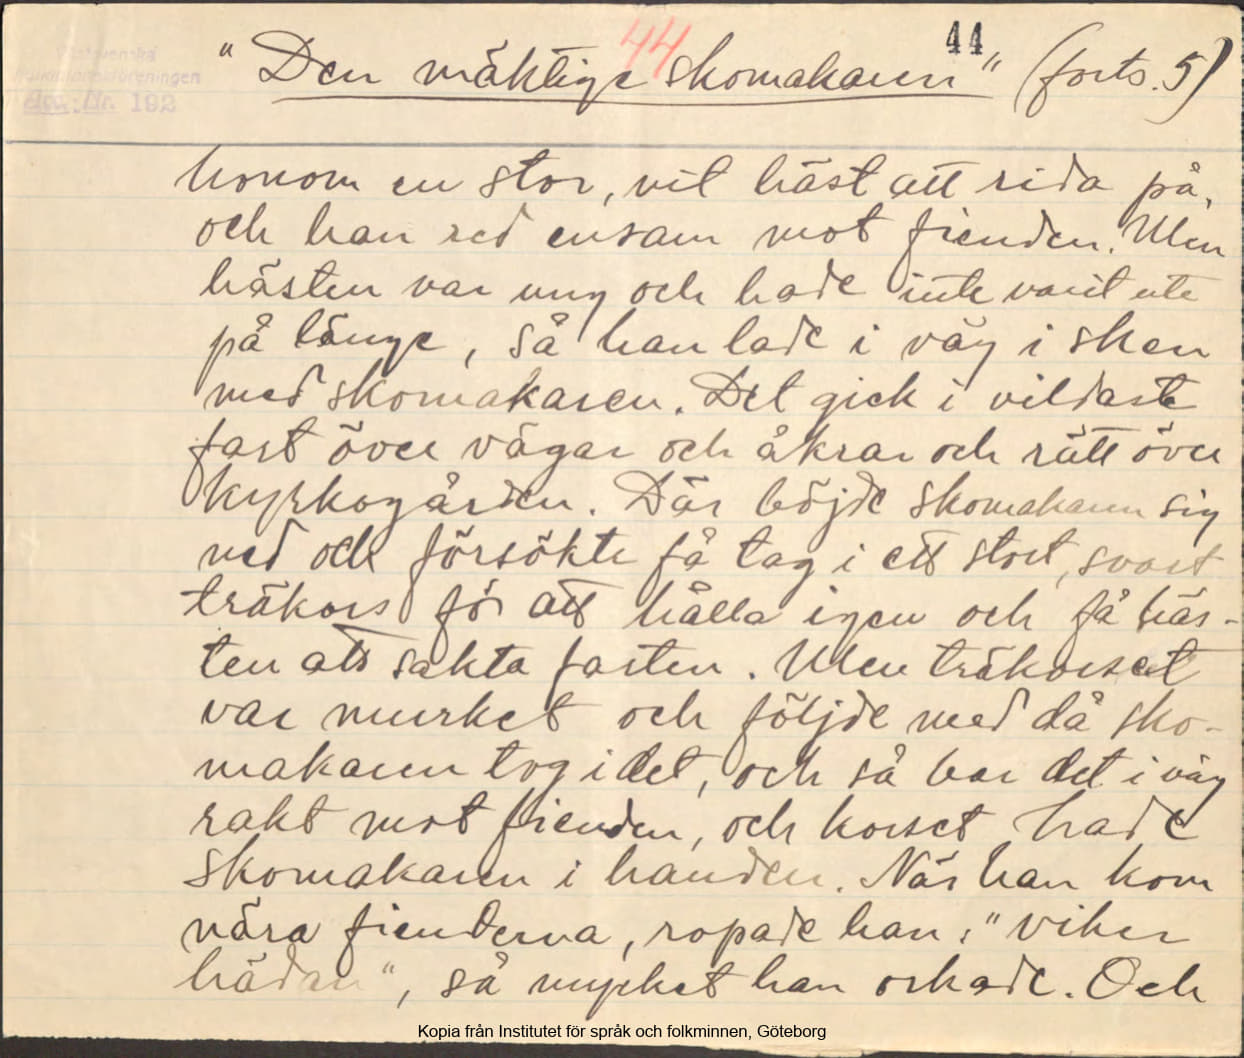 44
44
Västsvenska
folkminnesföreningen
Acc. Nr. 192
"Den mäktige skomakaren" (forts. 5)
honom en stor, vit häst att rida på,
och han red ensam mot fienden. Men
hästen var ung och hade inte varit ute
på länge, så han lade i väg i sken
med skomakaren. Det gick i vildaste
fart över vägar och åkrar och rätt över
kyrkogården. Där böjde skomakaren sig
ned och försökte få tag i ett stort, svart
träkors för att hålla igen och få häs-
ten att sakta farten. Men träkorset
var murket och följde med då sko-
makaren tog i det, och så bar det i väg
rakt mot fienden, och korset hade
skomakaren i handen. När han kom
nära fienderna, ropade han: "viker
hädan", så mycket han orkade. Och
Kopia från Institutet för språk och folkminnen, Göteborg